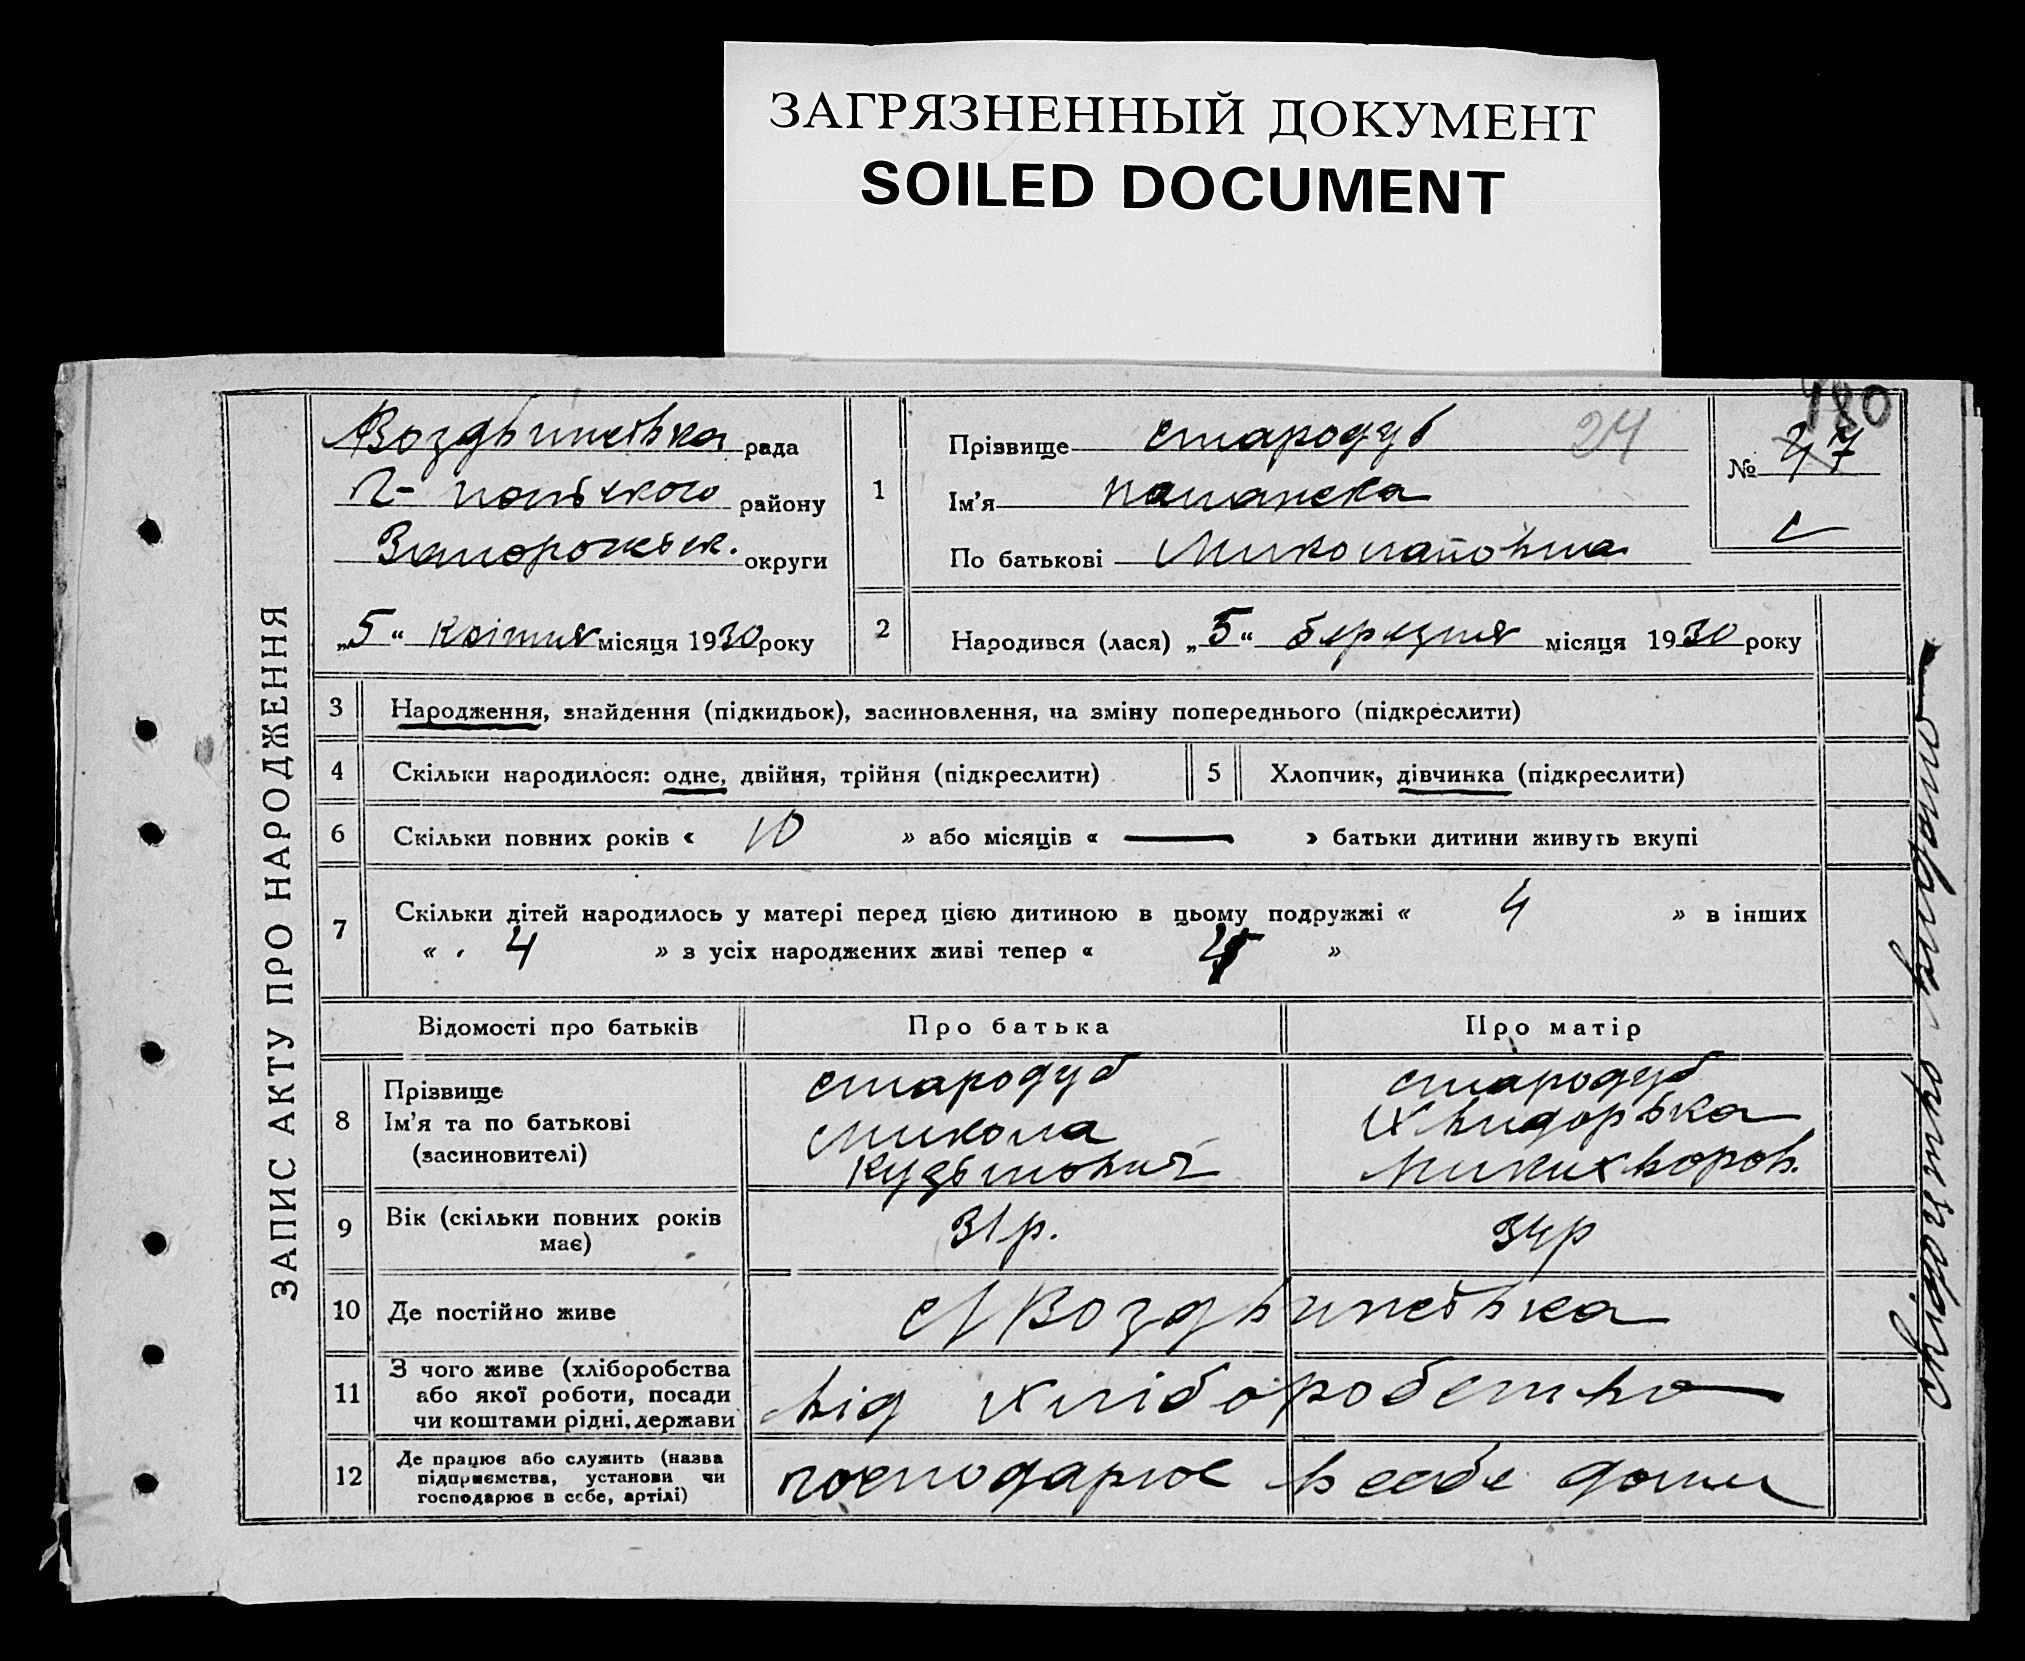 ЗАГРЯЗНЕННЫЙ ДОКУМЕНТ
SOILED DOCUMENT
ЗАПИС АКТУ ПРО НАРОДЖЕННЯ
Воздвижевка рада
району
Запорожськ. округи
„5“ квітня місяця 1930 року
1
Прізвище Стародуб 24
Ім'я
По батькові Миколаївна
180
№ 47
2
Народився (лася) „5“ березня місяця 1930 року
3 Народження, знайдення (підкидьок), засиновлення, на зміну попереднього (підкреслити)
4 Скільки народилося: одне, двійня, трійня (підкреслити) 5 Хлопчик, дівчинка (підкреслити)
6 Скільки повних років « 10 » або місяців « — » батьки дитини живуть вкупі
7 Скільки дітей народилось у матері перед цією дитиною в цьому подружжі « 4 » в інших
« 4 » з усіх народжених живі тепер « »
Відомості про батьків Про батька Про матір
8 Прізвище Стародуб Стародуб
Ім'я та по батькові Микола Хвидорвка
(засиновителі) Кузьмович Микихворов.
9 Вік (скільки повних років має) 31 р. 34 р
10 Де постійно живе Воздвижевка
11 З чого живе (хліборобства або якої роботи, посади чи коштами рідні, держави від хліборобства
12 Де працює або служить (назва підприємства, установи чи господарює в себе, артілі) господарює в себе дома